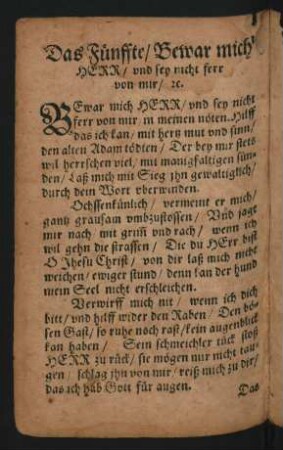 Das Fünffte/ Bewar mich
HERR/ vnd sey nicht ferr
von mir/ ꝛc.
BEwar mich HERR/ vnd sey nicht
ferr von mir in meinen nöten. Hilff
das ich kan/ mit hertz mut vnd sinn/
den alten Adam tödten/ Der bey mir stets
wil herrschen viel/ mit manigfaltigen sün-
den/ Laß mich mit Sieg jhn gewaltiglich/
durch dein Wort vberwinden.
Ochssenkünlich/ vermeint er mich/
gantz grausam vmbzustossen/ Vnd jagt
mir nach mit grim̃ vnd rach/ wenn ich
wil gehn die strassen/ Die du HErr bist
O Jhesu Christ/ von dir laß mich nicht
weichen/ ewiger stund/ denn kan der hund
mein Seel nicht erschleichen.
Verwirff mich nit/ wenn ich dich
bitt/ vnd hilff wider den Raben/ Den bö-
sen Gast/ so ruhe noch rast/ kein augenblick
kan haben/ Sein schmeichler rück stoß
HERR zu rück/ sie mögen mir nicht tau-
gen/ schlag jhn von mir/ reiß mich zu dir/
das ich hab Gott für augen.
Das